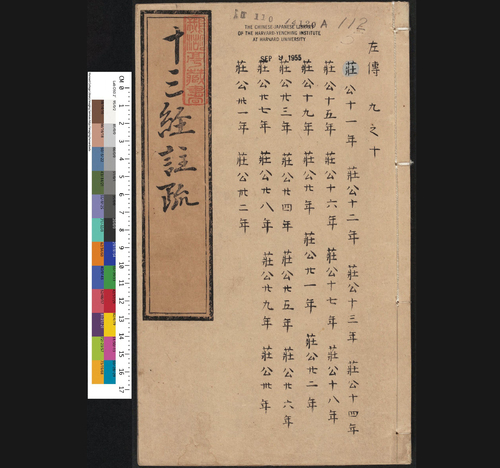 左傳 九之十
莊公十一年 莊公十二年 莊公十三年 莊公十四年
莊公十五年 莊公十六年 莊公十七年 莊公十八年
莊公十九年 莊公廿年 莊公廿一年 莊公廿二年
莊公廿三年 莊公廿四年 莊公廿五年 莊公廿六年
莊公廿七年 莊公廿八年 莊公廿九年 莊公卅年
莊公卅一年 莊公卅二年
十三經註疏
112
THE CHINESE-JAPANESE LIBRARY
OF THE HARVARD-YENCHING INSTITUTE
AT HARVARD UNIVERSITY
1955
CM 0 1 2 3 4 5 6 7 8 9 10 11 12 13 14 15 16 17